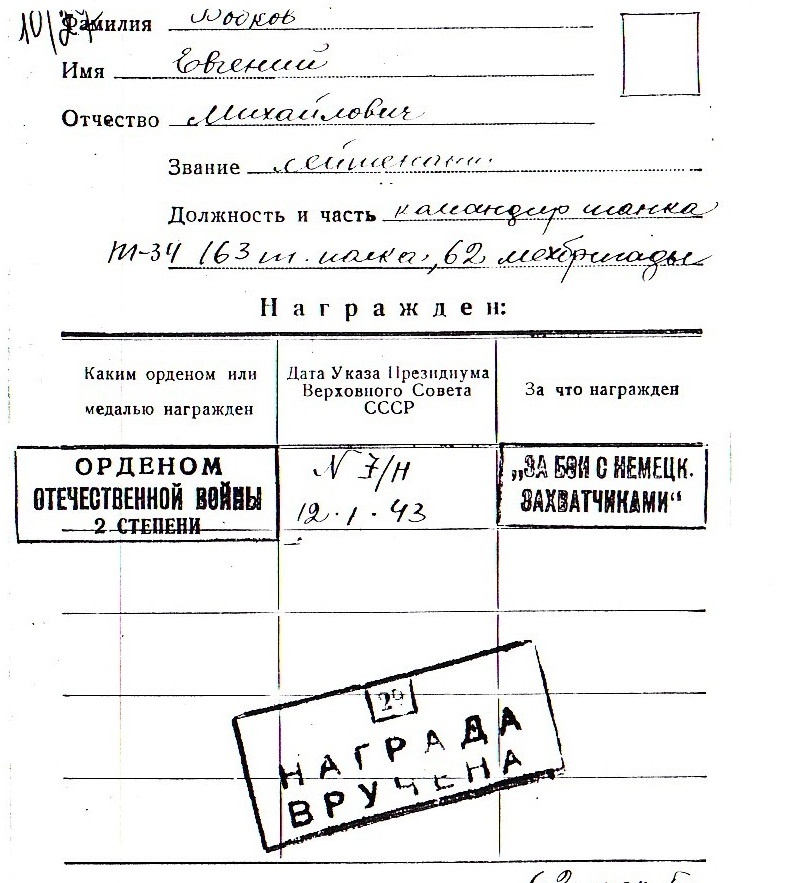 10/27
Фамилия
Имя Евгений
Отчество Михайлович
Звание лейтенант
Должность и часть командир танка
Т-34 163 т. полка, 62 мехбригады
Награжден:
Каким орденом или медалью награжден
Дата Указа Президиума Верховного Совета СССР
За что награжден
ОРДЕНОМ
ОТЕЧЕСТВЕННОЙ ВОЙНЫ
2 СТЕПЕНИ
N 7/н
12.1.43
„ЗА БОИ С НЕМЕЦК.
ЗАХВАТЧИКАМИ“
29
НАГРАДА
ВРУЧЕНА